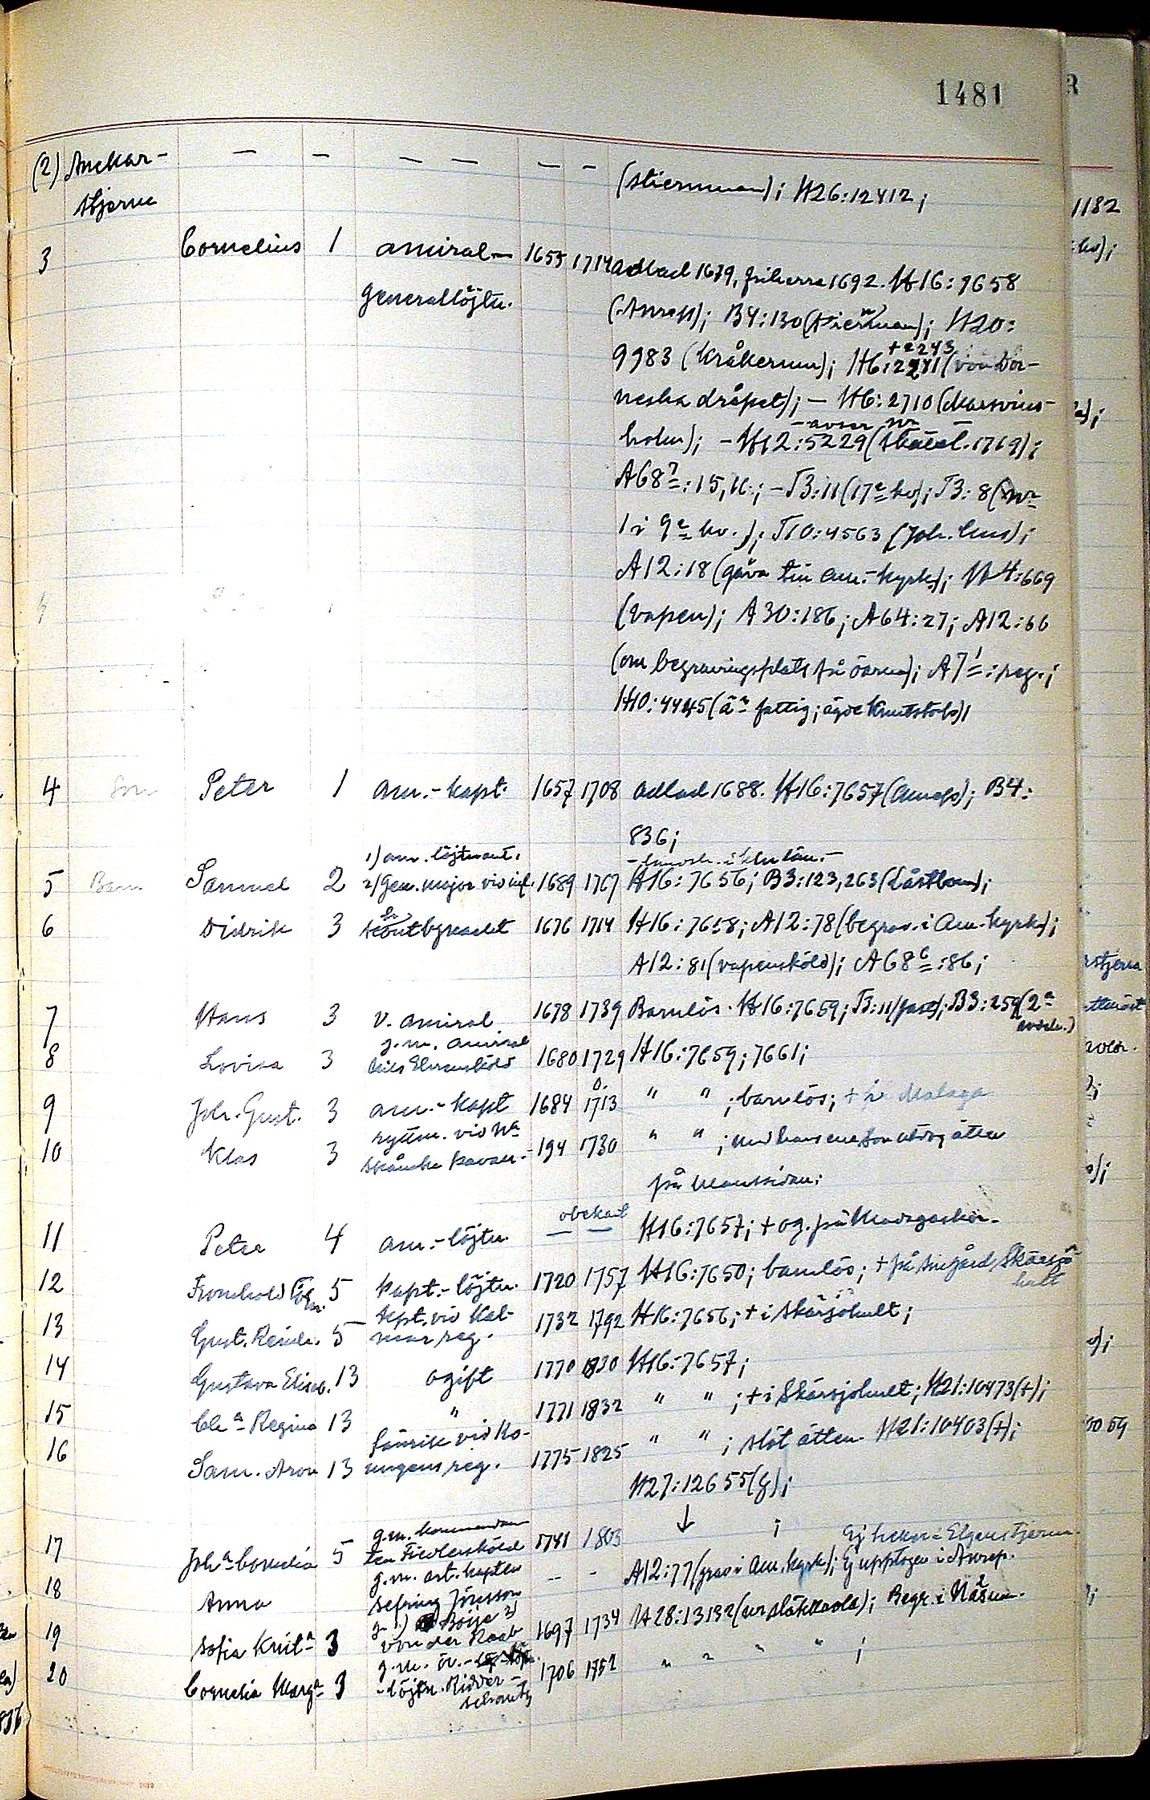 1481
(2) Anckar- — — — — — —
stjerna (Stiernman); H26:12412;
3 Cornelius 1 amiral- 1655 1714 adlad 1679, friherre 1692. H16:7658
generallöjtn. (Anrep); B4:130 (Stiernman); H20:
+2243
9983 (Kråkerum); H6:2241 (von Dör-
neska dråpet); — H6:2710 (
holm); — H12:5229 ( 1719);
— avser nr —
A68⁷:15, 16; — J3:11 (17e kv); J3:8 (nr
1 i 9e kv.); J10:4563 (Joh. hus);
A12:18 (gåva till am.-kyrk); H4:669
(vapen); A30:186; A64:27; A12:66
(om begravningsplats på öarna); A7¹:reg.;
H10:4445 (äa fattig; ägde Knutstorp);
4 Son Peter 1 am.-kapt. 1657 1708 adlad 1688. H16:7657 (Anrep); B4:
836;
1) am. löjtnant.
5 Barn Samuel 2 2) Gen. major vid inf. 1689 1767 H16:7656; B3:123, 263 (Låstbom);
6 Didrik 3 1676 1714 H16:7658; A12:78 (begrav. i am. kyrk);
A12:81 (vapensköld); A68⁶:86;
7 Hans 3 v. amiral 1678 1739 Barnlös. H16:7659; J3:11; B3:259 (2a
8 Lovisa 3 g.m. amiral Ehrensköld 1680 1729 H16:7659; 7661;
9 Joh. Gust. 3 am.-kapt 1684 1713 " " ; barnlös; + i Malaga
10 Klas 3 ryttm. vid Na 194 1730 " " ; med hans ene son utdog ätten
skånska kavall.- på manssidan;
11 Peter 4 am.-löjtn obekant H16:7657; + og. på Madagaskar.
12 Fromhold 5 kapt.-löjtn. 1720 1757 H16:7650; barnlös; + på sin gård, Skärsjö-
hult
13 Gust. Reinh. 5 kapt. vid Kal- 1732 1792 H16:7656; + i Skärsjöhult;
mar reg.
14 Gustava Elisab. 13 ogift 1770 1830 H16:7657;
15 Cha Regina 13 " 1771 1832 " " ; + i Skärsjöhult; H21:10473 (+);
16 Sam. Aron 13 fänrik vid Ko- 1775 1825 " " ; slöt ätten. H21:10403 (+);
nungens reg. H27:12655 (g);
17 Joha Cornelia 5 g.m. kommendan 1741 1803 ↓ ; Ej heller i Elgenstjerna.
ten Fredlersköld
18 Anna g.m. art. kapten - - A12:77 (grav i am. kyrk); Ej upptagen i Anrep.
Jönsson
19 Sofia Krista 3 g. 1) Boije 2) 1697 1734 H28:13132 (ur släkttavla); Begr. i Näsum.
von der Raab
20 Cornelia Marga 3 g.m. öv.- 1706 1752 " " " " ;
-löjtn. Ridder-
schantz